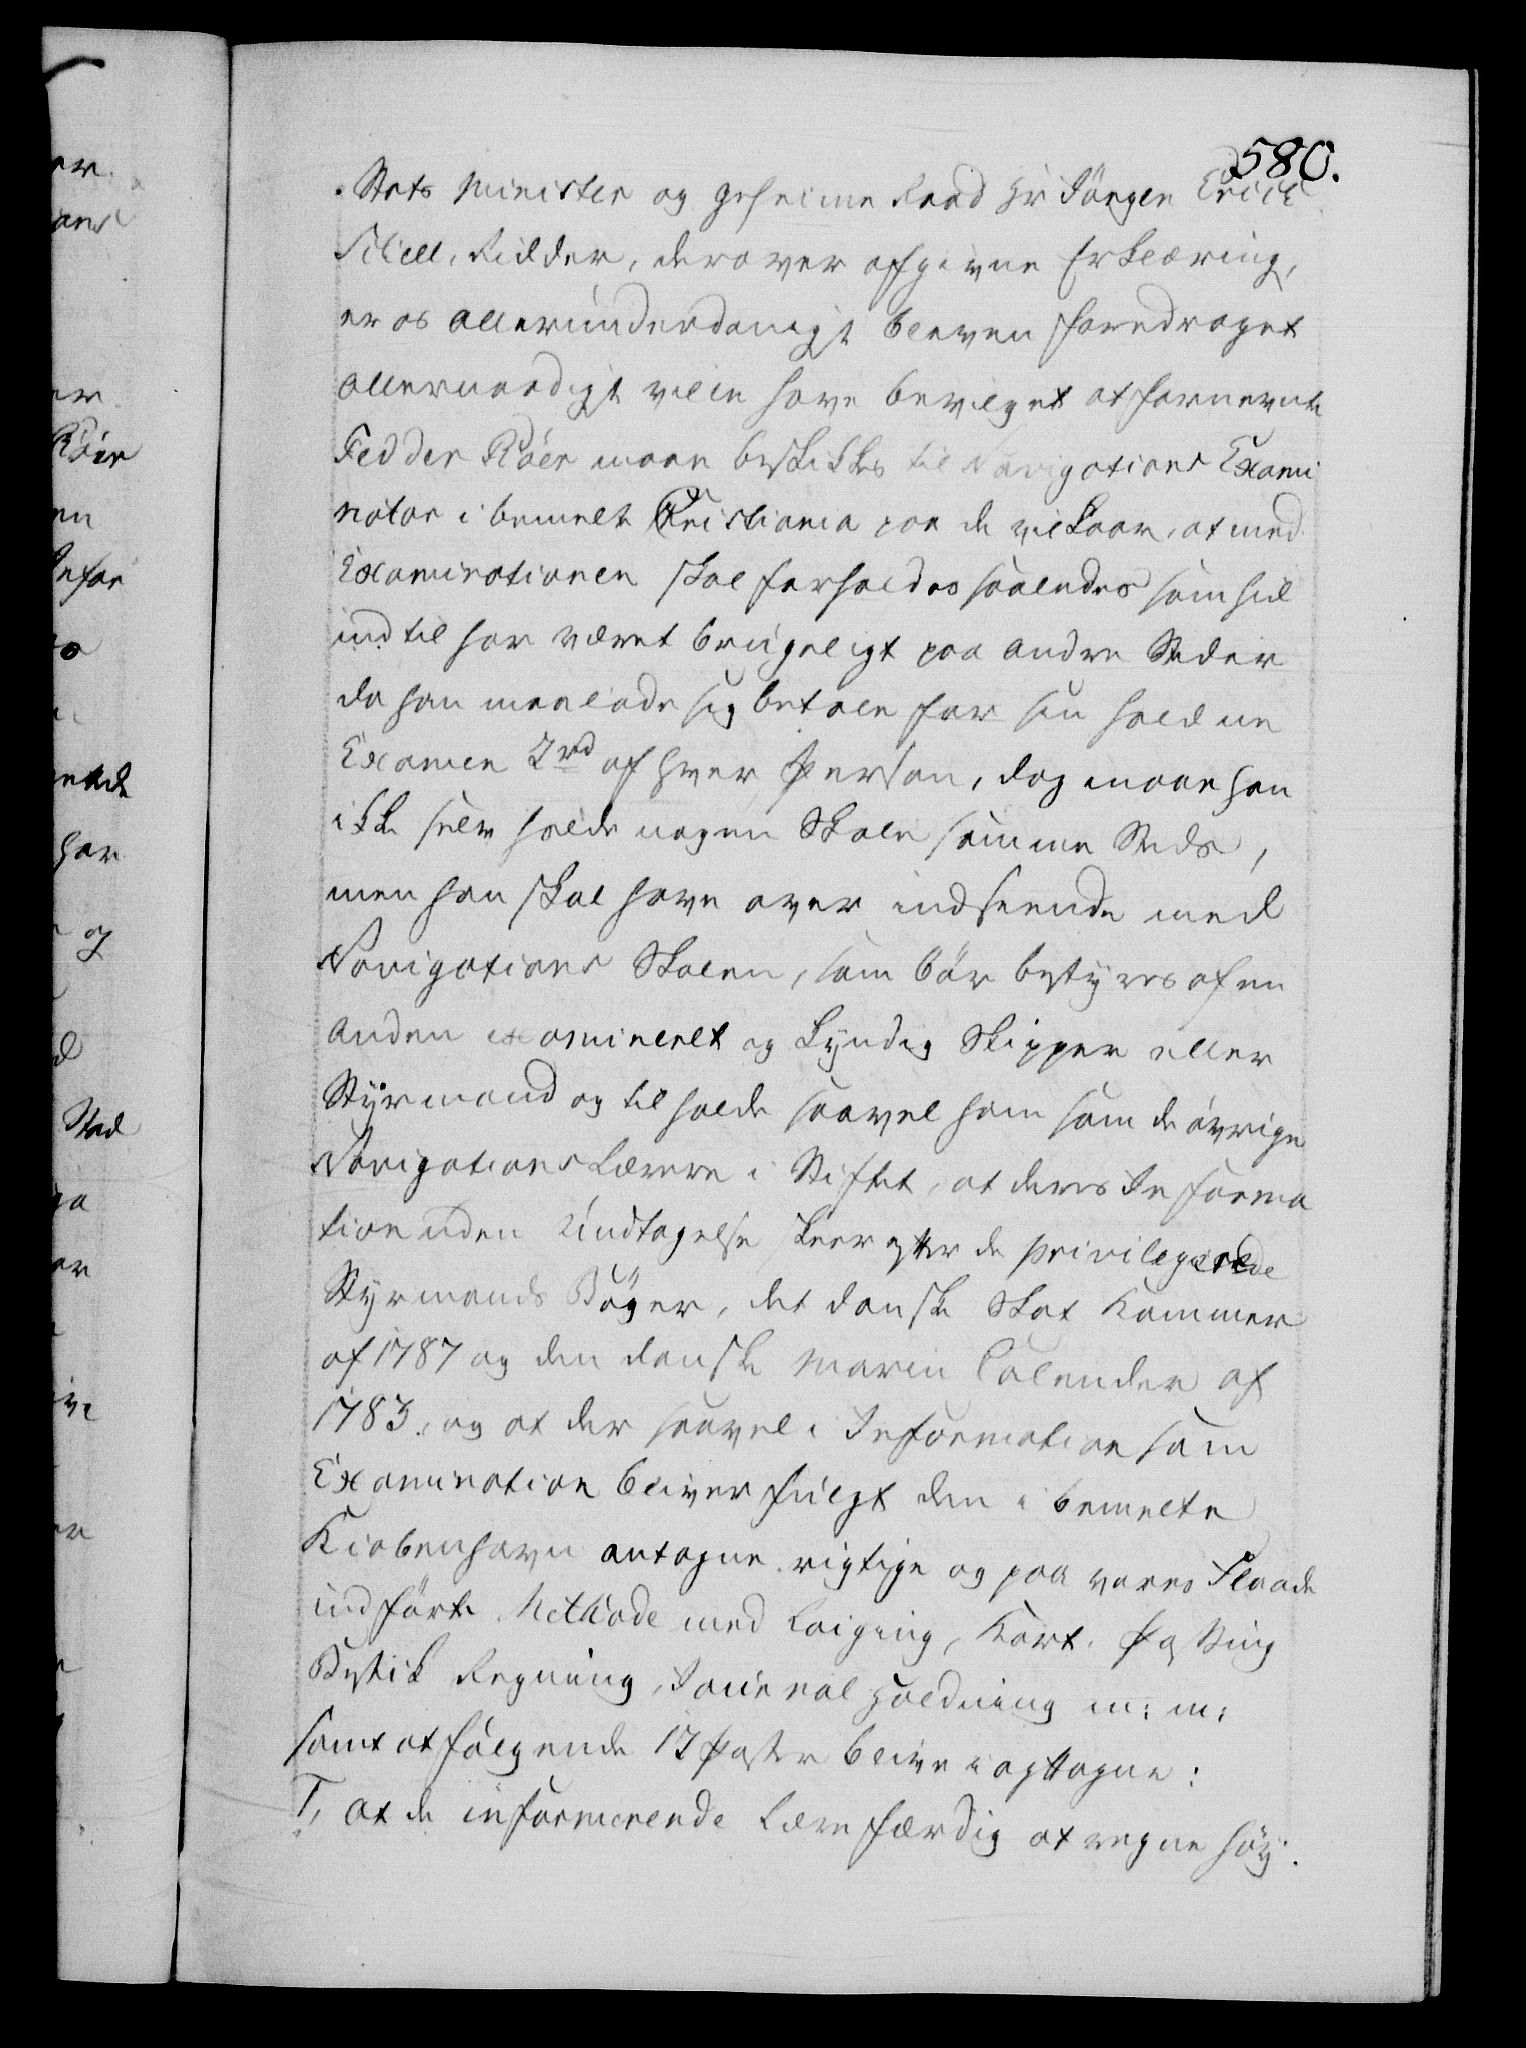 580.
Stats Minister og Geheime Raad Hr Jörgen Erich
Skeel, Ridder, derover afgivne Erklæring,
er os allerunderdanigst bleven foredraget
allernaadigst ville have bevilget at fornevnte
Fedder Röer maae beskikkes til Navigations Exami
nator i bemelte Christiania paa de vilkaar, at med
Examinationen skal forholdes saaledes som hid
indtil har været brugeligt paa andre Steder
da han maa lade sig betale for sin holdne
Examen 2 rd af hver Person, dog maae han
ikke selv holde nogen Skole samme Steds,
men han skal have over indseende med
Navigations Skolen, som bör bestyres af en
anden examineret og kyndig Skipper eller
Styrmand og til holde saavel ham som de övrige
Navigations Lærere i Stiftet, at deres Informa
tion uden Undtagelse skeer efter de privilegerede
Styrmands Böger, det danske Skat Kammer
af 1787 og den danske Marin Calender af
1783, og at der saavel i Information som
Examination bliver fulgt den i bemelte
Kiøbenhavn antagne rigtige og paa vores Flaade
indförte Methode med Logning, Kort. Pasning
Bestik Regning, Journal Holdning m: m:
samt at fölgende 17 Poster blive iagttagne:
1, at de informerende Lære færdig at regne höy.